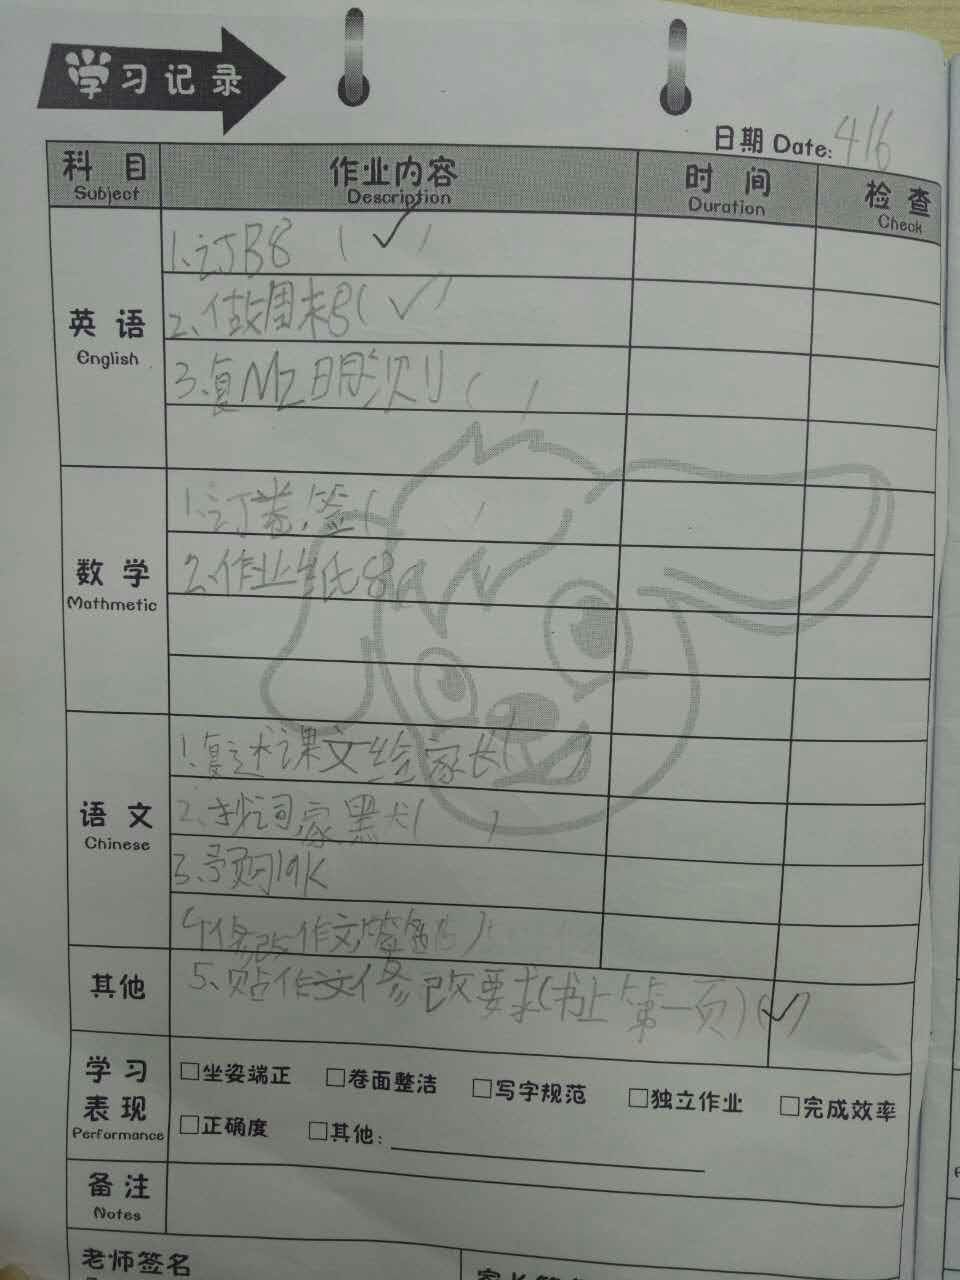 学习记录
日期 Date: 416
科目 作业内容 时间 检查
Subject Description Duration Check
1.订B8 ( ✓ )
2.做周末8( ✓ )
英语
English
3.复M2明测 ( )
1.订卷.签( )
2.作业纸8
数学
Mathmetic
1.复述课文给家长( )
2.抄词家默( )
语文
Chinese
3.预习19K
4.修改作文签名( )
其他
5.贴作文修改要求(书上第一页)(✓)
学习
表现
Performance
□坐姿端正 □卷面整洁 □写字规范 □独立作业 □完成效率
□正确度 □其他:
备注
Notes
老师签名